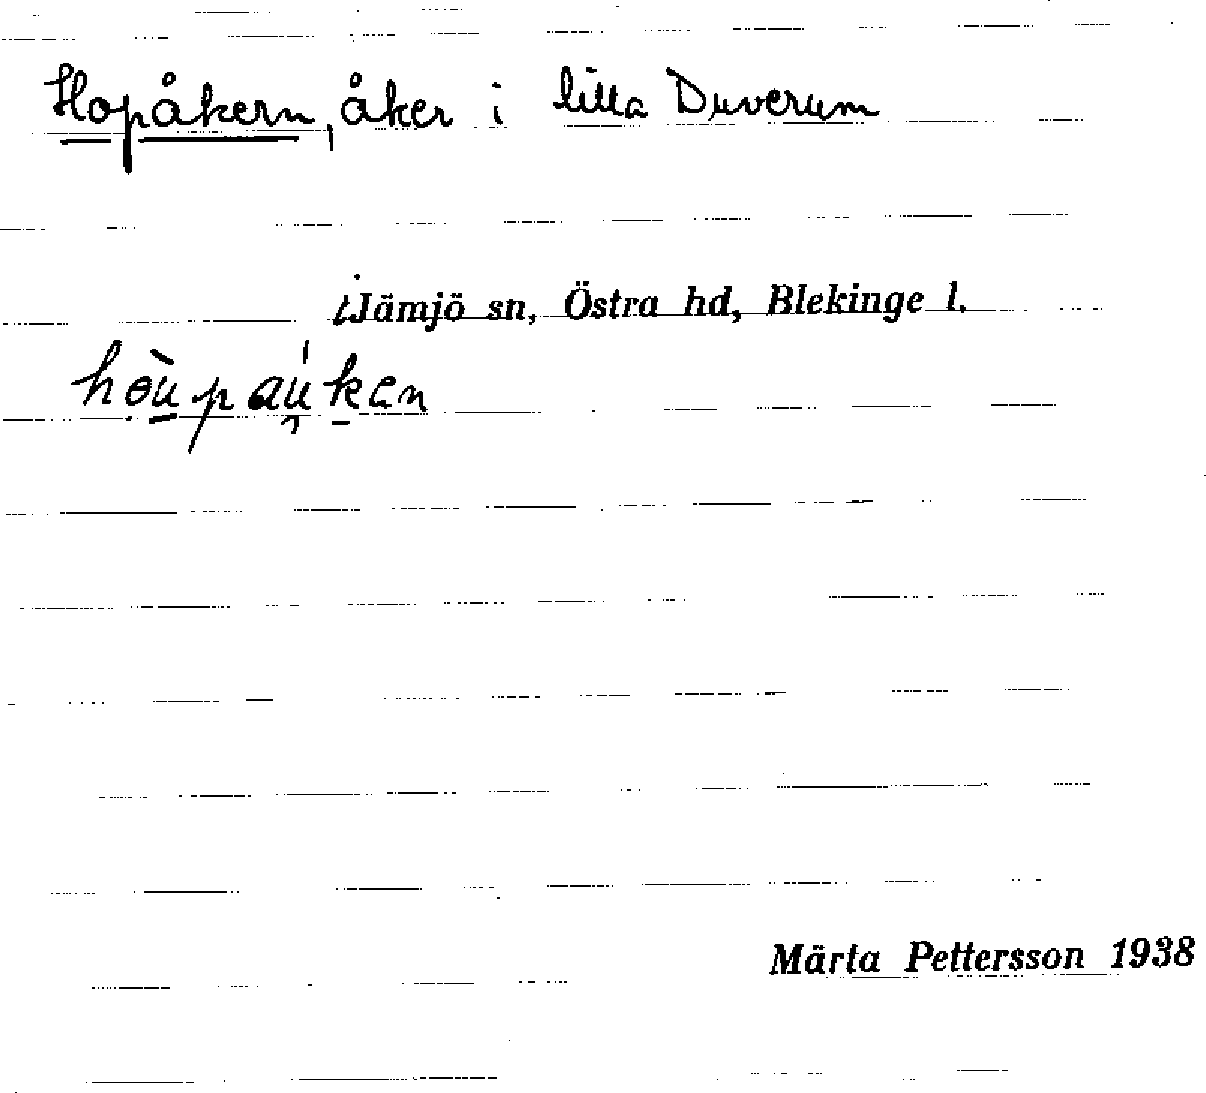 Hopåkern, åker i lilla Duverum
i Jämjö sn, Östra hd, Blekinge l.
hɵ̀upaúkan
Märta Pettersson 1938